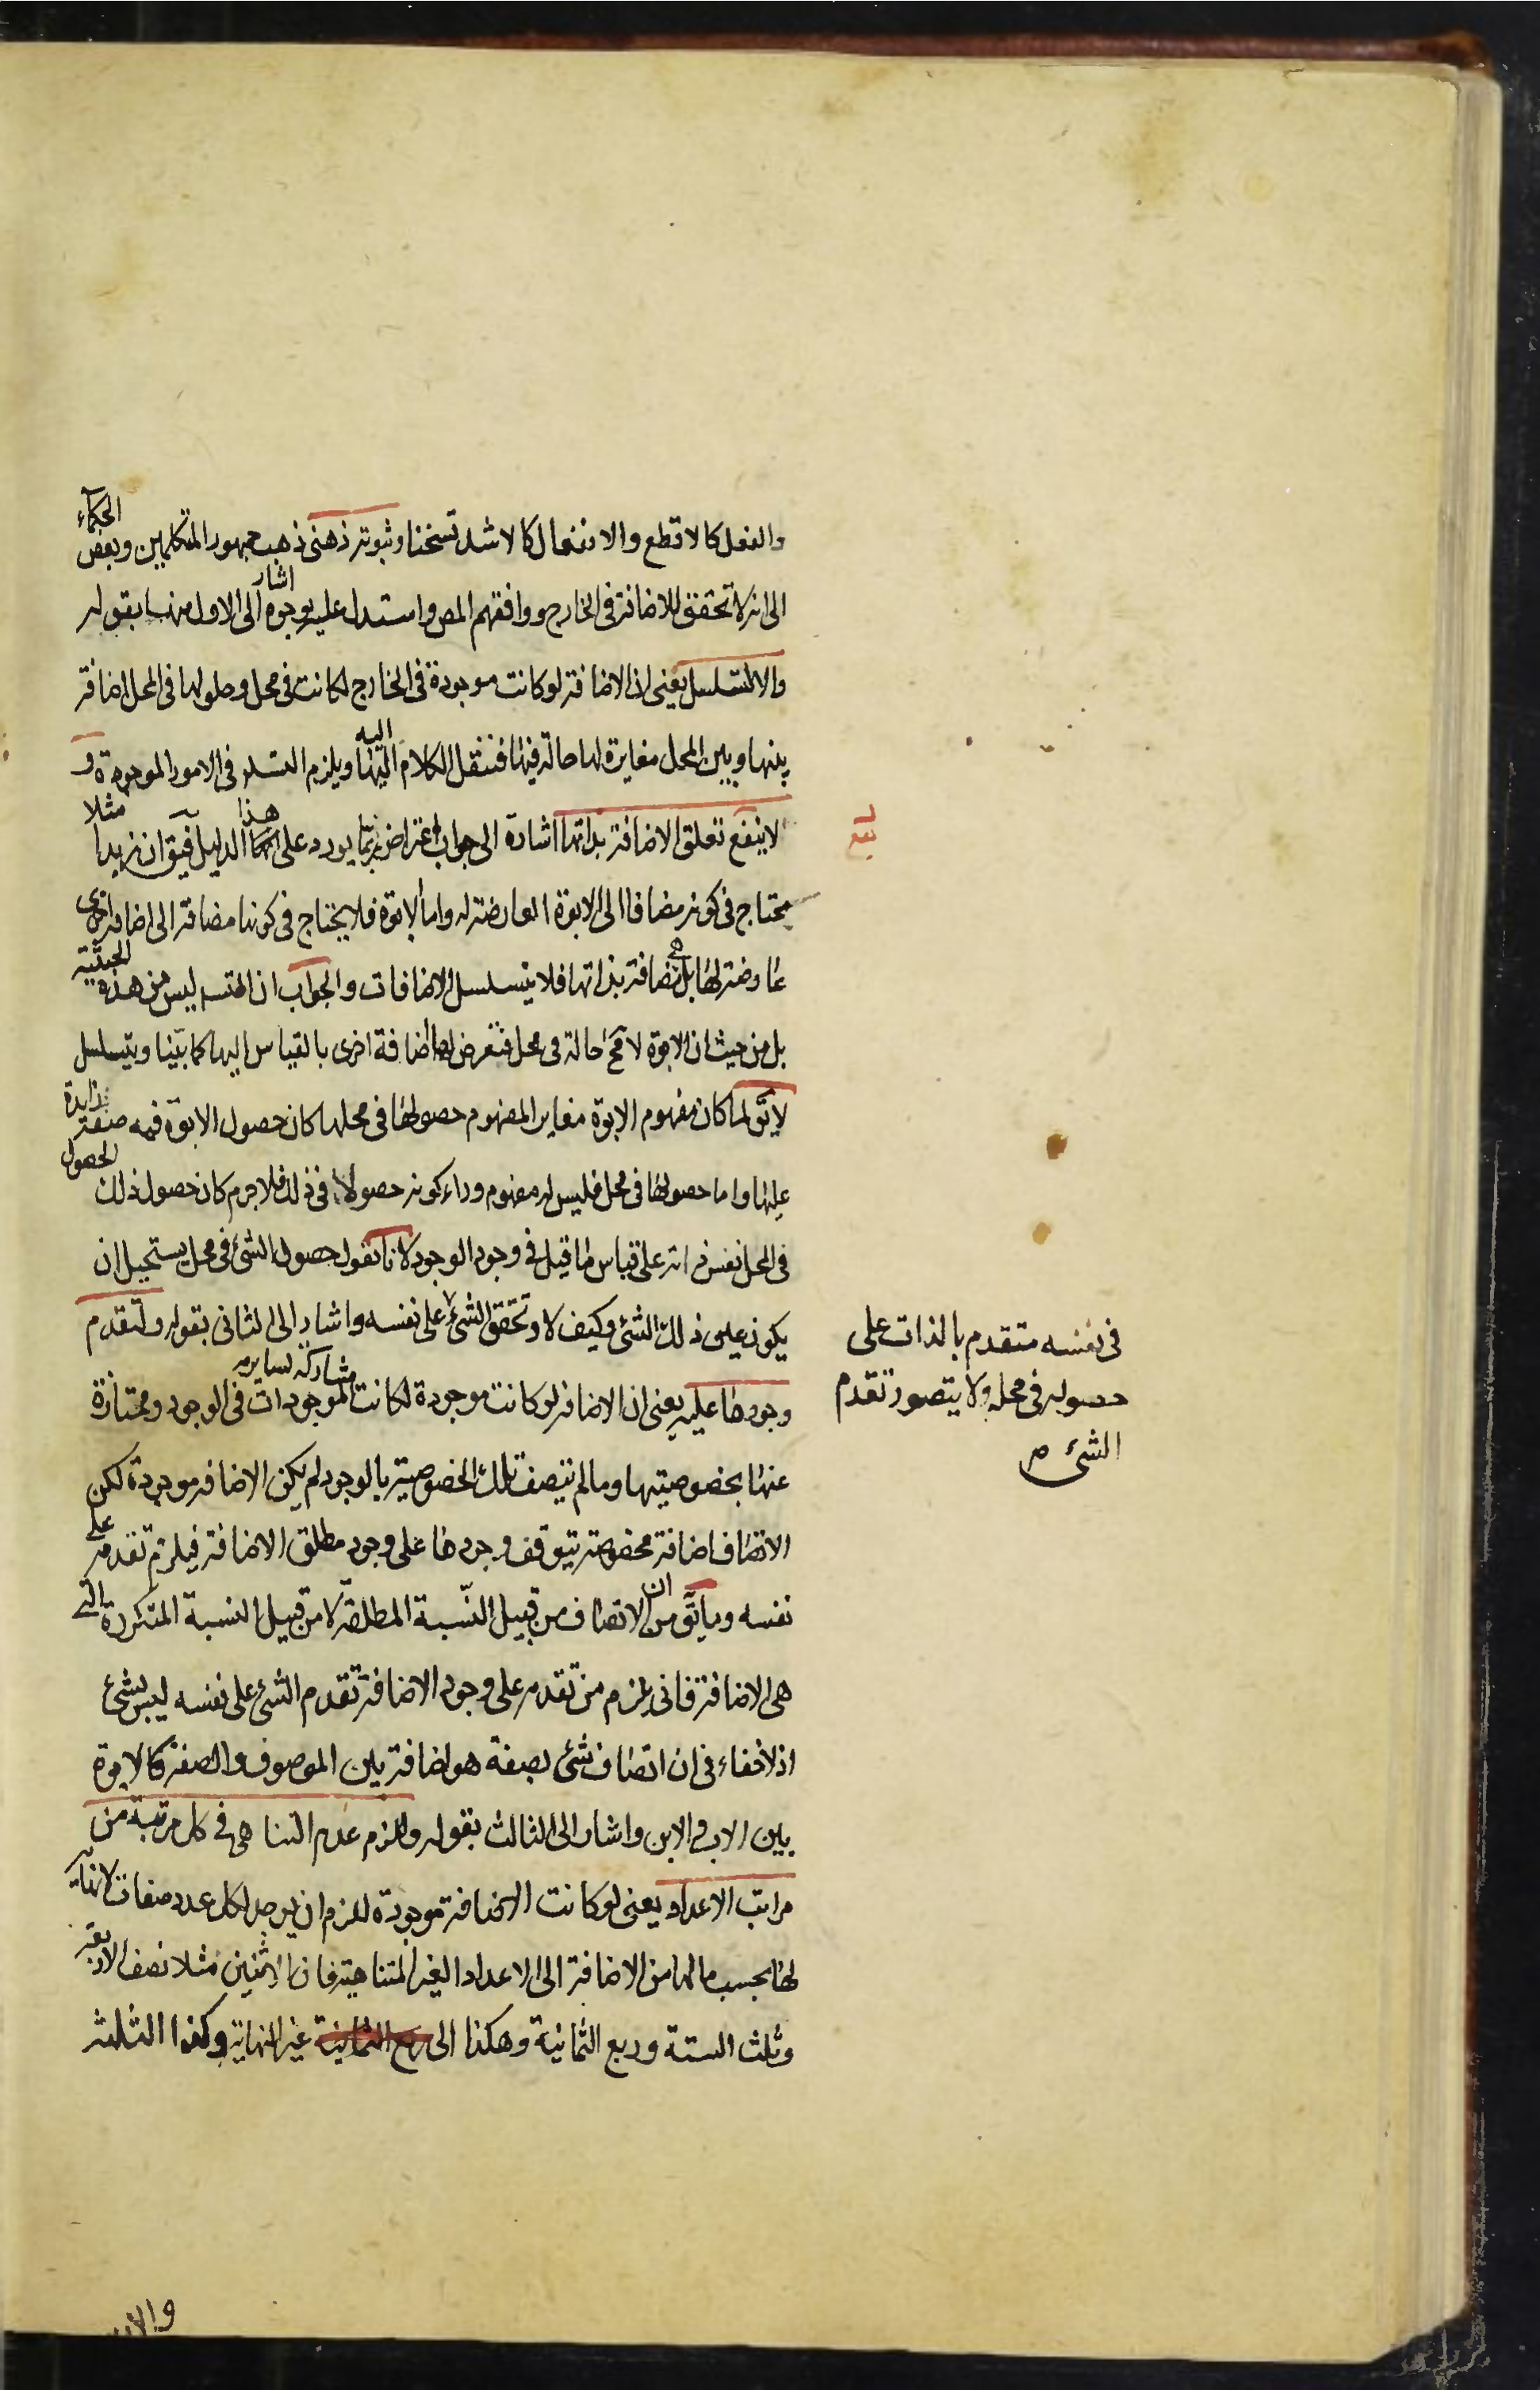 والفعل كالاقطع والانفعال كالاشد تسخنا وثبوته ذهنى ذهب جمهور المتكلمين وبعض الحكماء
الى انه لا تحقق للاضافة فى الخارج ووافقهم المص واستدل عليه بوجوه اشار الى الاول منها بقوله
والا لتسلسل يعنى ان الاضافة لو كانت موجودة فى الخارج لكانت فى محل وحلولها فى المحل اضافة
بينها وبين المحل مغايرة لها حالة فيها فننقل الكلام اليها اليه ويلزم التسلسل فى الامور الموجودة و
لا ينفع تعلق الاضافة بذاتها اشارة الى جواب اعتراض ربما يورد على هذا الدليل فيق ان زيدا مثلا
يحتاج فى كونه مضافا الى الابوة العارضة له واما الابوة فلا يحتاج فى كونها مضافة الى اضافة اخرى
عارضة لها بل هى مضافة بذاتها فلا يتسلسل الاضافات والجواب ان التسلسل ليس من هذه الحيثية
بل من حيث ان الابوة لا مح حالة فى محل فتعرض لها اضافة اخرى بالقياس اليها كما بيّنا ويتسلسل
لا يق لما كان مفهوم الابوة مغاير المفهوم حصولها فى محلها كان حصول الابوة فيه صفة زايدة
عليها واما حصولها فى محل فليس له مفهوم وراء كونه حصولا فى ذلك فلا جرم كان حصول ذلك الحصول
فى المحل نفس ذاته على قياس ما قيل فى وجود الوجود لانا نقول حصول الشئ فى محل يستحيل ان
يكون عين ذلك الشئ وكيف لا وتحقق الشئ على نفسه واشار الى الثانى بقوله ولتقدم
وجودها عليه يعنى ان الاضافة لو كانت موجودة لكانت مشاركة لساير الموجودات فى الوجود وممتازة
عنها بخصوصيتها وما لم يتصف تلك الخصوصية بالوجود لم يكن الاضافة موجودة لكن
الاتصاف اضافة مخصوصة يتوقف وجودها على وجود مطلق الاضافة فيلزم تقدمه على
نفسه وما يق من ان الاتصاف من قبيل النّسبة المطلقة لا من قبيل النسبة المتكررة التى
هى الاضافة فانى يلزم من تقدمه على وجود الاضافة تقدم الشئ على نفسه ليس بشئ
اذ لا خفاء فى ان اتصاف شئ بصفة هو اضافة بين الموصوف والصفة كالابوة
بين الاب والابن واشار الى الثالث بقوله ولزم عدم التناهى فى كل مرتبة من
مراتب الاعداد يعنى لو كانت الاضافة موجودة للزم ان يوجد لكل عدد صفات لا نهاية
لها بحسب ما لها من الاضافة الى الاعداد الغير المتناهية فان الاثنين مثلا نصف الاربعة
وثلث الستة وربع الثمانية وهكذا الى غير النهاية وكذا الثلثة
فى نفسه متقدم بالذات على
حصوله فى محله ولا يتصور تقدم
الشئ